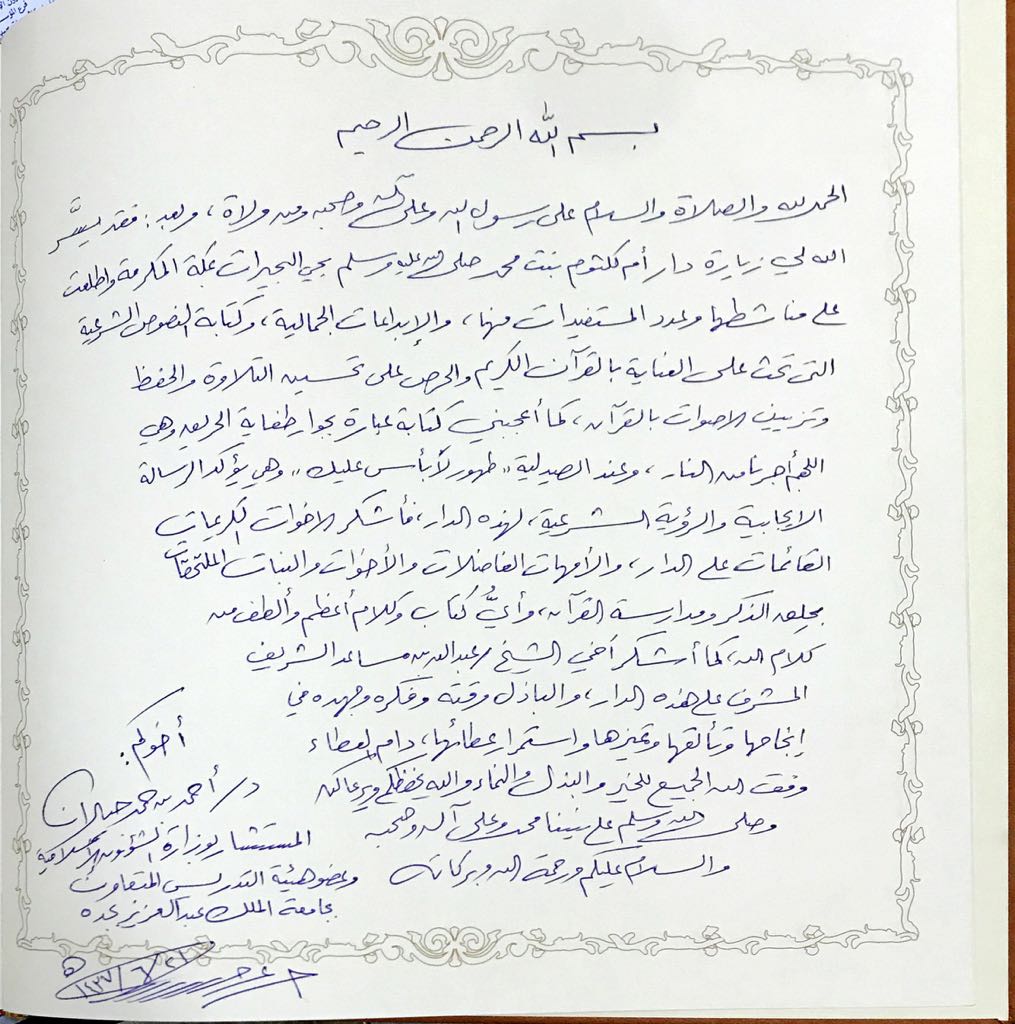 بسم الله الرحمن الرحيم
الحمد لله والصلاة والسلام على رسول الله وعلى آله وصحبه ومن والاة ، وبعد : فقد يسَّر
الله لي زيارة دار أم كلثوم بنت محمد صلى الله عليه وسلم بحي البحيرات بمكة المكرمة واطلعت
على مناشطها وعدد المستفيدات منها ، والإبداعات الجمالية ، وكتابة النصوص الشرعية
التي تحث على العناية بالقرآن الكريم والحرص على تحسين التلاوة والحفظ
وتزيين الاصوات بالقرآن ، كما أعجبني كتابة عبارة بجوار طفاية الحريق وهي
اللهم أجرنا من النار ، وعند الصيدلية " طهور لا بأس عليك " وهي يؤكد الرسالة
الايجابية والرؤية الشرعية ، لهذه الدار ، فأشكر الاخوات الكريمات
القائمات على الدار ، والأمهات الفاضلات والأخوات والبنات الملتحقات
بحلق الذكر ومدارسة القرآن ، وأيُّ كتاب وكلام أعظم وألطف من
كلام الله ، كما أشكر أخي الشيخ / عبدالله بن مساعد الشريف
المشرف على هذه الدار ، والباذل وقته وفكره وجهده في
إنجاحها وتألقها وتميزها واستمرار عطائها ، دام العطاء
وفق الله الجميع للخير والبذل والنماء والله يحفظكم ويرعاكم
وصلى الله وسلم على نبينا محمد وعلى آله وصحبه
والسلام عليكم ورحمة الله وبركاته
أخوكم :
د / أحمد بن حمد جيلان
المستشار بوزارة الشؤون الاسلامية
وعضو هيئة التدريس المتعاون
بجامعة الملك عبدالعزيز بجده